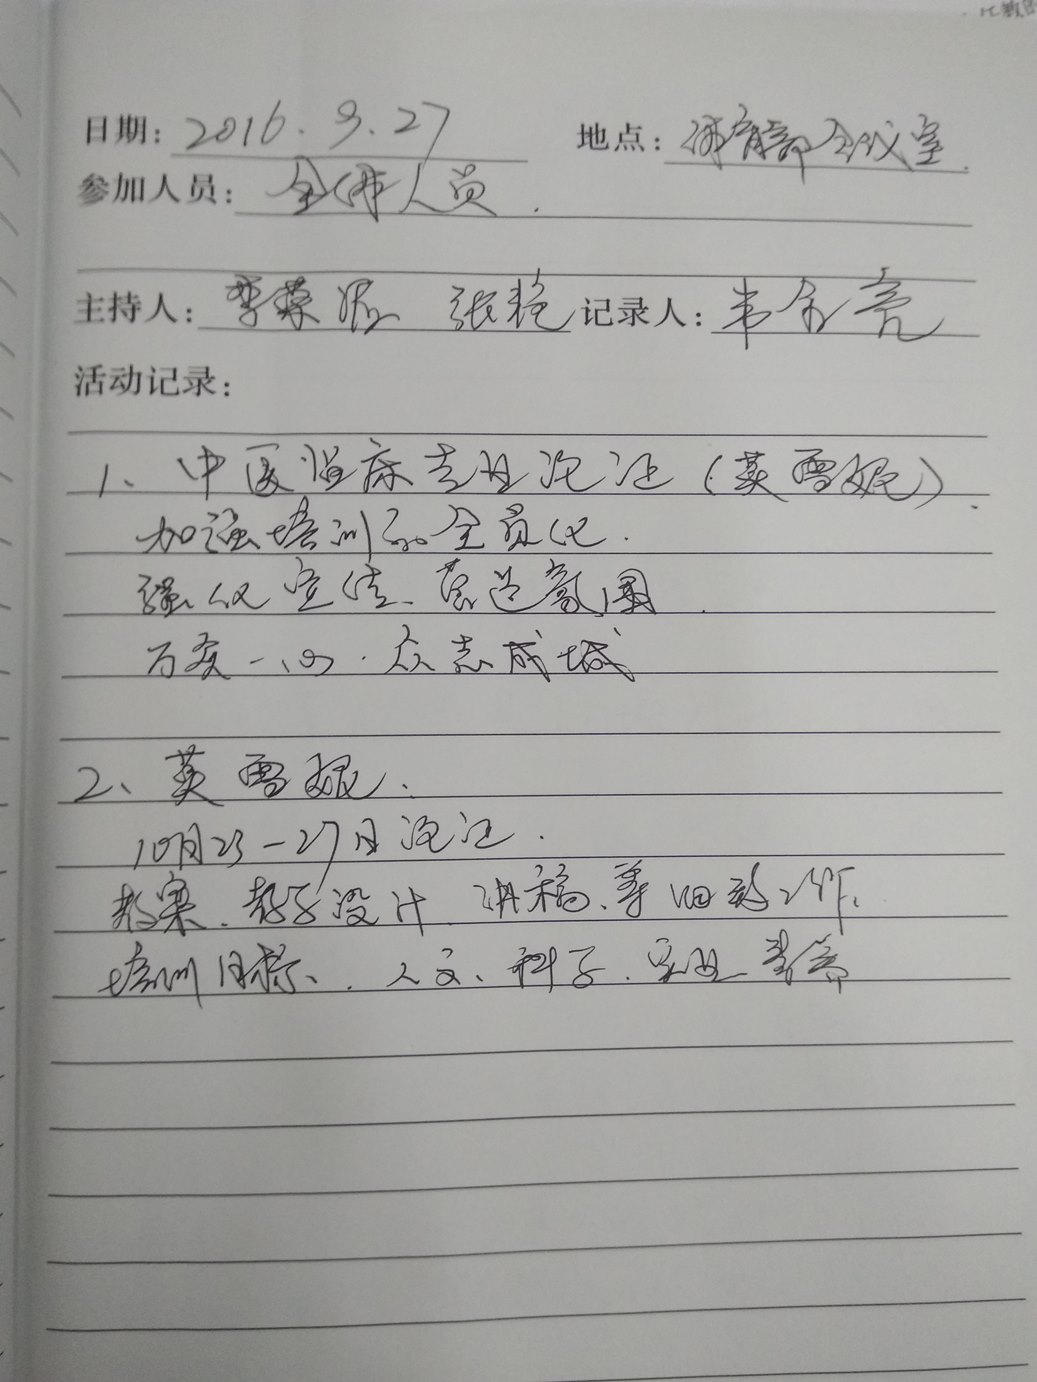 化教研
日期：2016.9.27 地点：体育部会议室.
参加人员：全体人员.
主持人：李荣 张艳 记录人：韦余亮
活动记录：
1、中医临床专业论证（黄雪妮）.
加强培训的全员化.
强化宣传、营造氛围.
万众一心.众志成城
2、黄雪妮.
10月23-27日论证.
教案、教学设计、讲稿、等细致工作、
培训目标、.人文、科学、专业